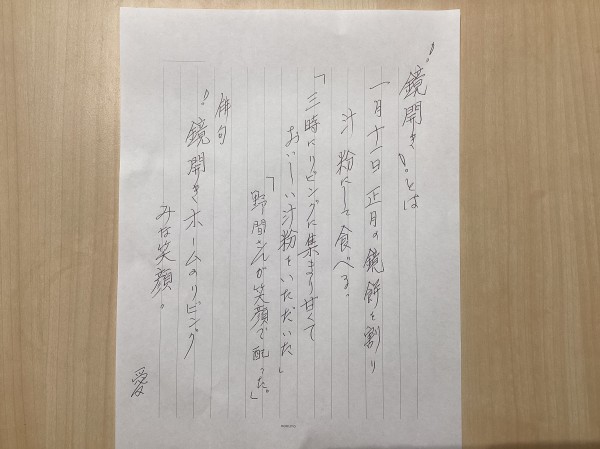 "鏡開き"とは
一月十一日正月の鏡餅を割り
汁粉にして食べる。
「三時にリビングに集まり甘くて
おいしい汁粉をいただいた」
「野間さんが笑顔で配った。」
俳句
"鏡開きホームのリビング
みな笑顔。
愛